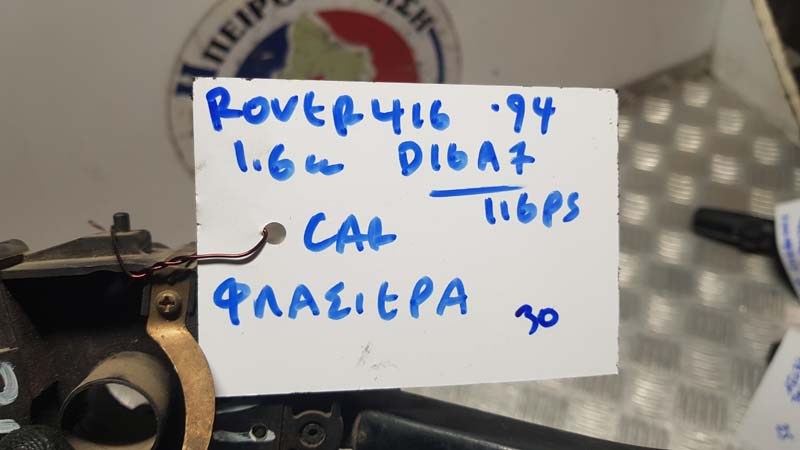 ΗΠΕΙΡΟ
ROVER 416 '94
1.6cc D16A7
116PS
CAR
ΦΛΑΣΙΕΡΑ
30